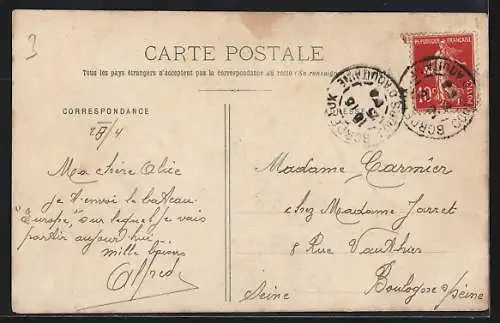 3
CARTE POSTALE
Tous les pays étrangers n'acceptent pas la correspondance au recto (Se renseigner
CORRESPONDANCE
Ma chère Alice
je t'envoi le bateau
"Europe", sur lequel je vais
partir aujourd'hui.
Mille baisers
Alfred
Madame Carmier
chez Madame Jarret
8 Rue Vauthier
Boulogne s/Seine
Seine
BORDEAUX
10c
POSTES